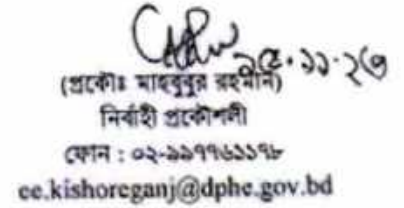 ২৫.১১.২৩
(প্রকৌঃ মাহবুবুর রহমান)
নির্বাহী প্রকৌশলী
ফোন : ০২-৯৯৭৭৬১১৭৮
ee.kishoreganj@dphe.gov.bd